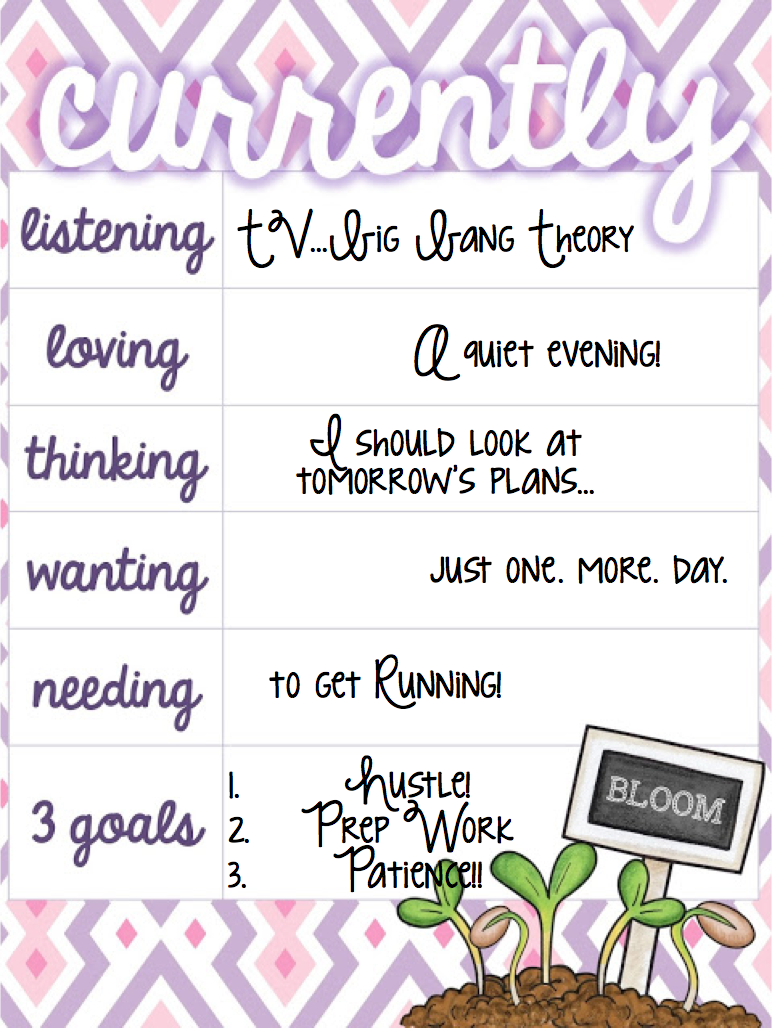 currently
listening TV...Big Bang Theory
loving A quiet evening!
thinking I should look at
tomorrow's plans...
wanting Just one. more. day.
needing to get Running!
3 goals
1. Hustle!
2. Prep Work
3. Patience!!
BLOOM